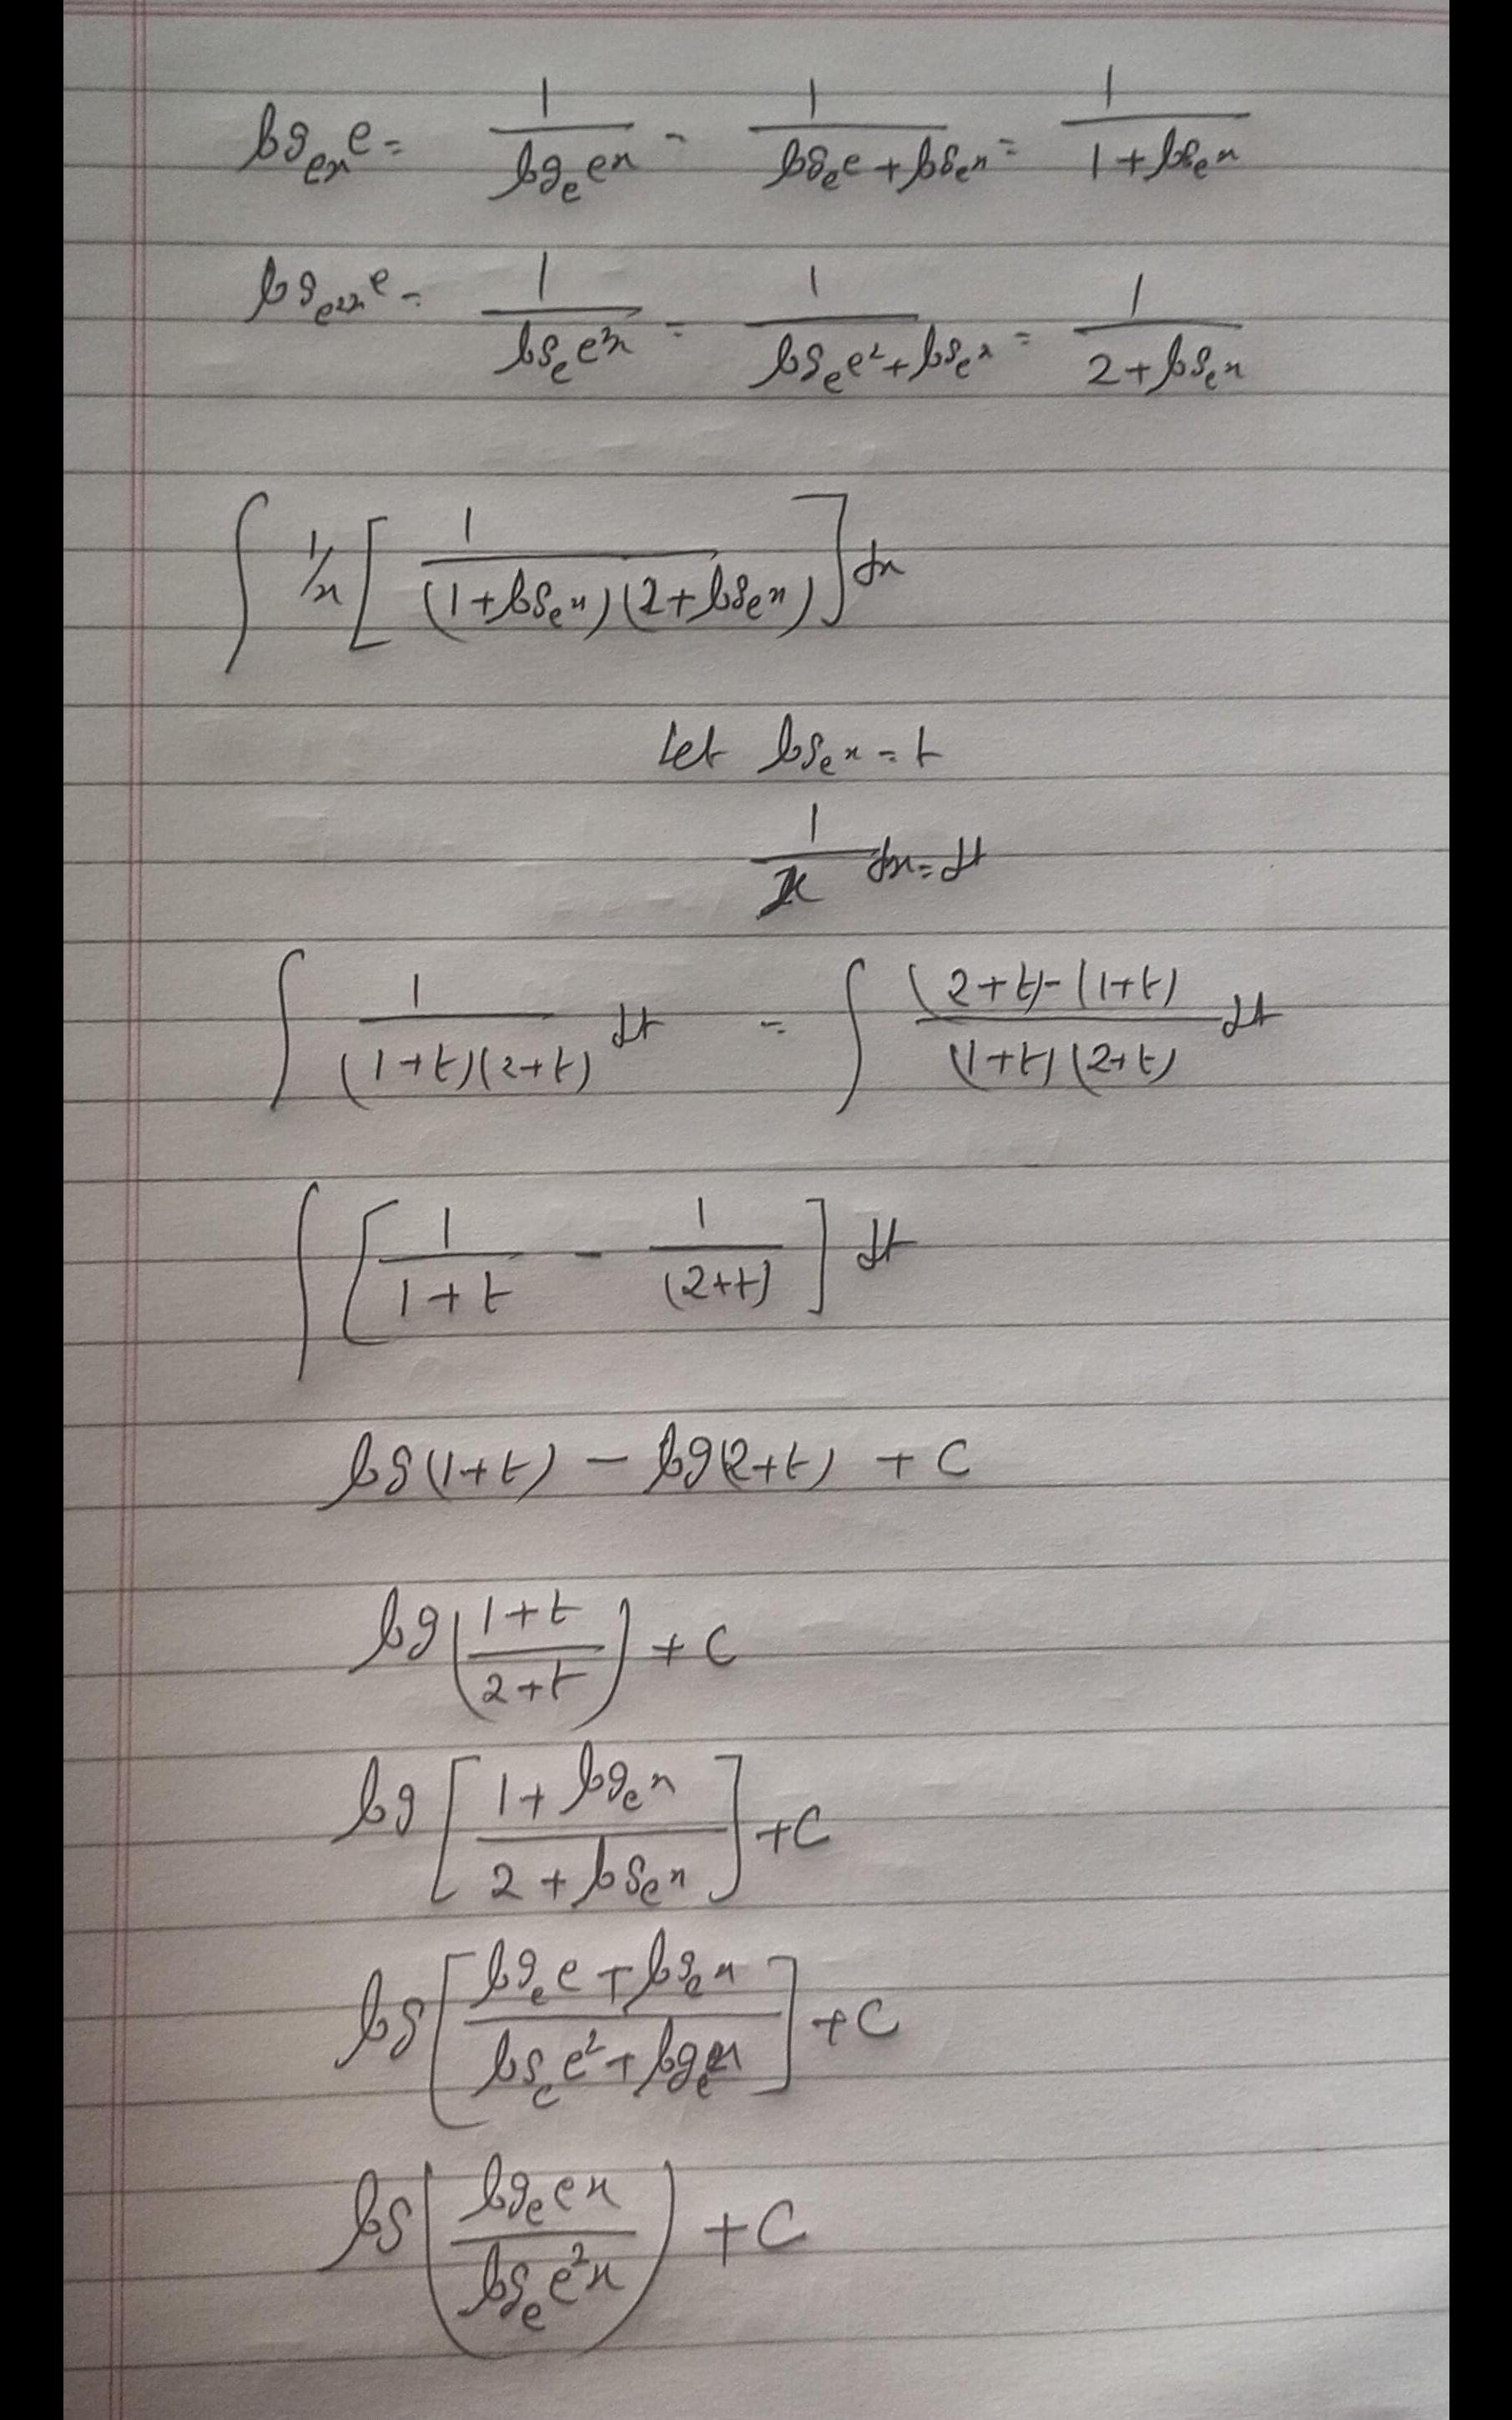 log_{ex} e = \frac{1}{log_e ex} = \frac{1}{log_e e + log_e x} = \frac{1}{1 + log_e x}
log_{e^2x} e = \frac{1}{log_e e^2x} = \frac{1}{log_e e^2 + log_e x} = \frac{1}{2 + log_e x}
∫ 1/x [ \frac{1}{(1 + log_e x)(2 + log_e x)} ] dx
Let log_e x = t
\frac{1}{x} dx = dt
∫ \frac{1}{(1+t)(2+t)} dt = ∫ \frac{(2+t)-(1+t)}{(1+t)(2+t)} dt
∫ [ \frac{1}{1+t} - \frac{1}{(2+t)} ] dt
log(1+t) - log(2+t) + C
log( \frac{1+t}{2+t} ) + C
log [ \frac{1 + log_e x}{2 + log_e x} ] + C
log [ \frac{log_e e + log_e x}{log_e e^2 + log_e x} ] + C
log ( \frac{log_e ex}{log_e e^2x} ) + C